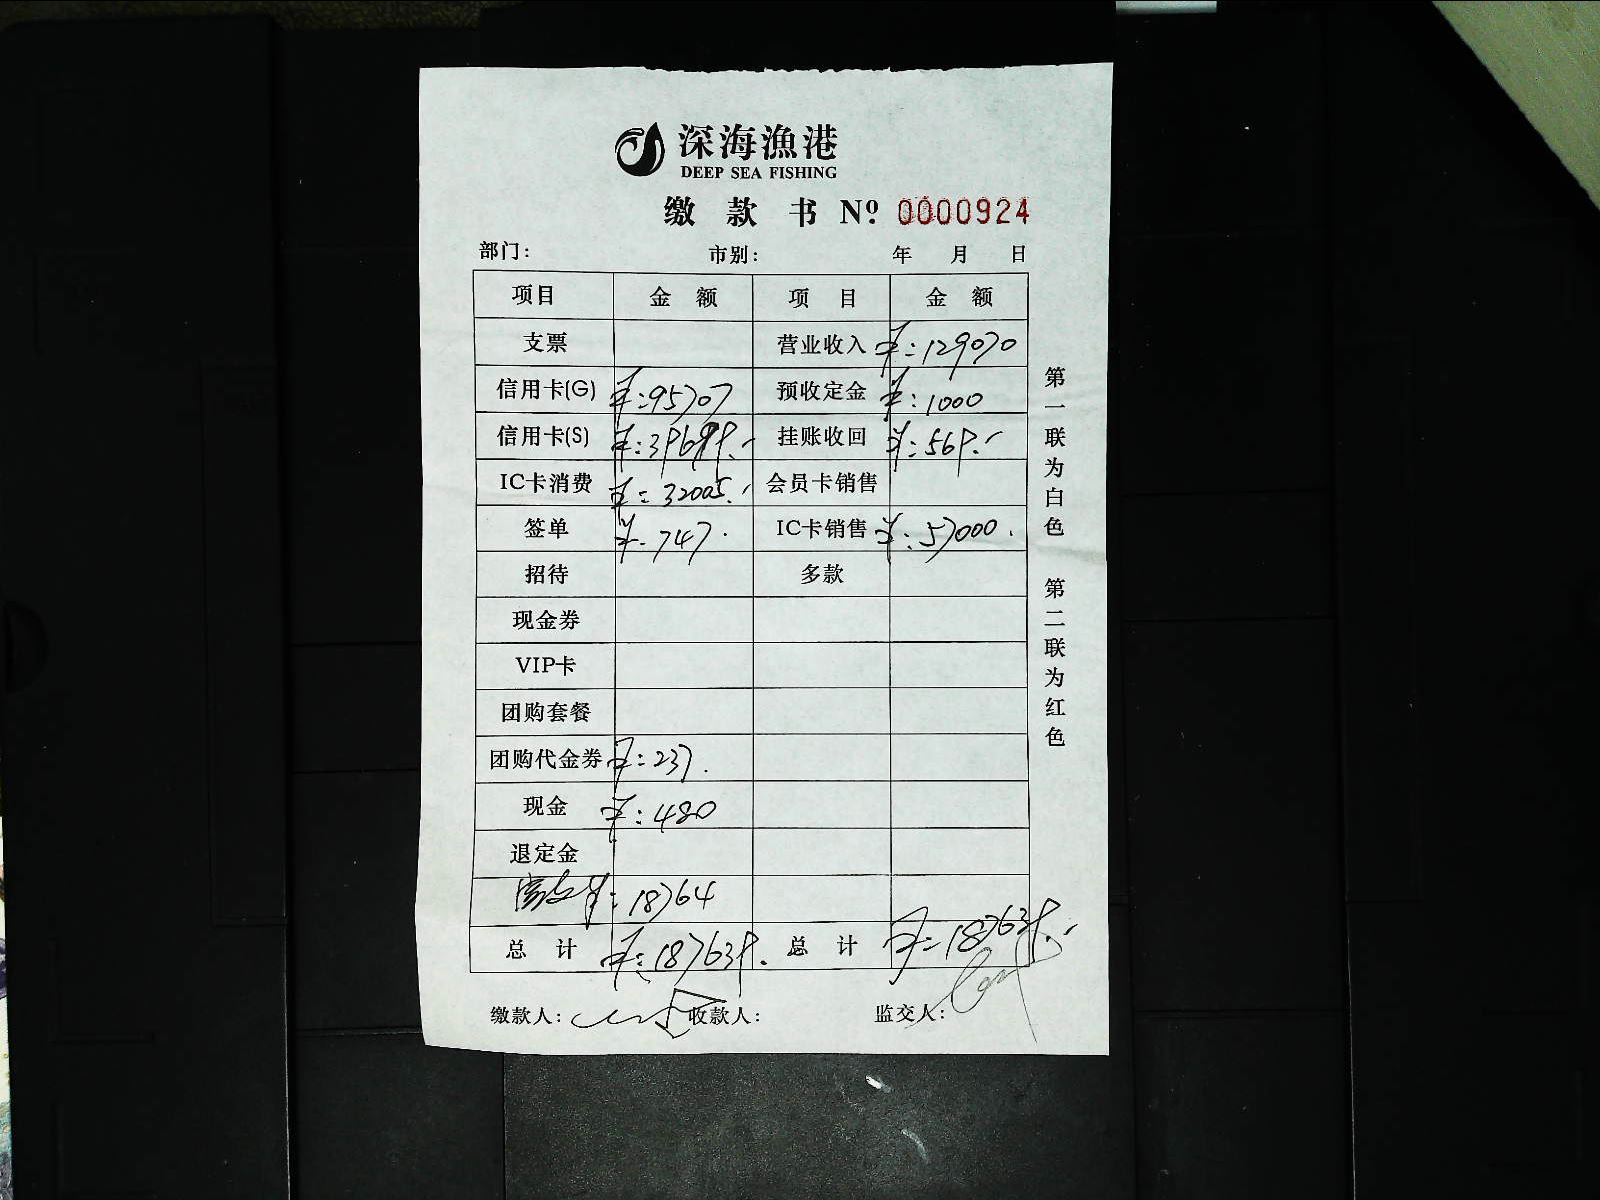 深海漁港
DEEP SEA FISHING
缴款书 Nº 0000924
部门： 市别： 年 月 日
项目 金额 项目 金额
支票 营业收入 ¥:129070
信用卡(G) ¥:95707 预收定金 ¥:1000
信用卡(S) ¥:39699. 挂账收回 ¥:569.
IC卡消费 ¥:32005. 会员卡销售
签单 ¥:747. IC卡销售 ¥:57000.
招待 多款
现金券
VIP卡
团购套餐
团购代金券 ¥:237.
现金 ¥:480
退定金
¥:18764
总计 ¥:187639. 总计 ¥:187639.
缴款人： 收款人： 监交人：
第一联为白色 第二联为红色